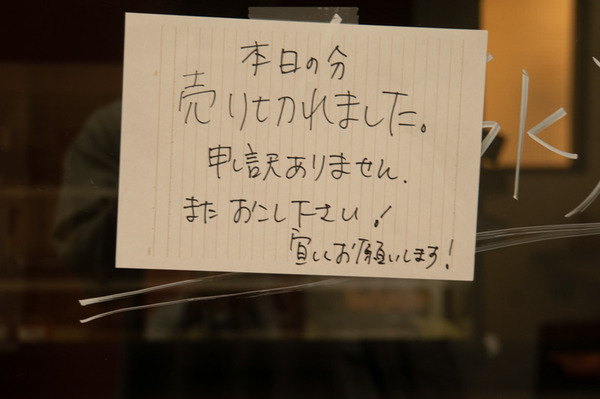 本日の分
売り切れました。
申し訳ありません.
また おこし下さい!
宜しくお願いします!